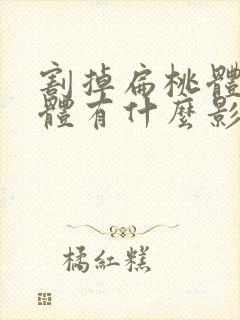 割掉扁桃體
體有什麼影
橘紅糕